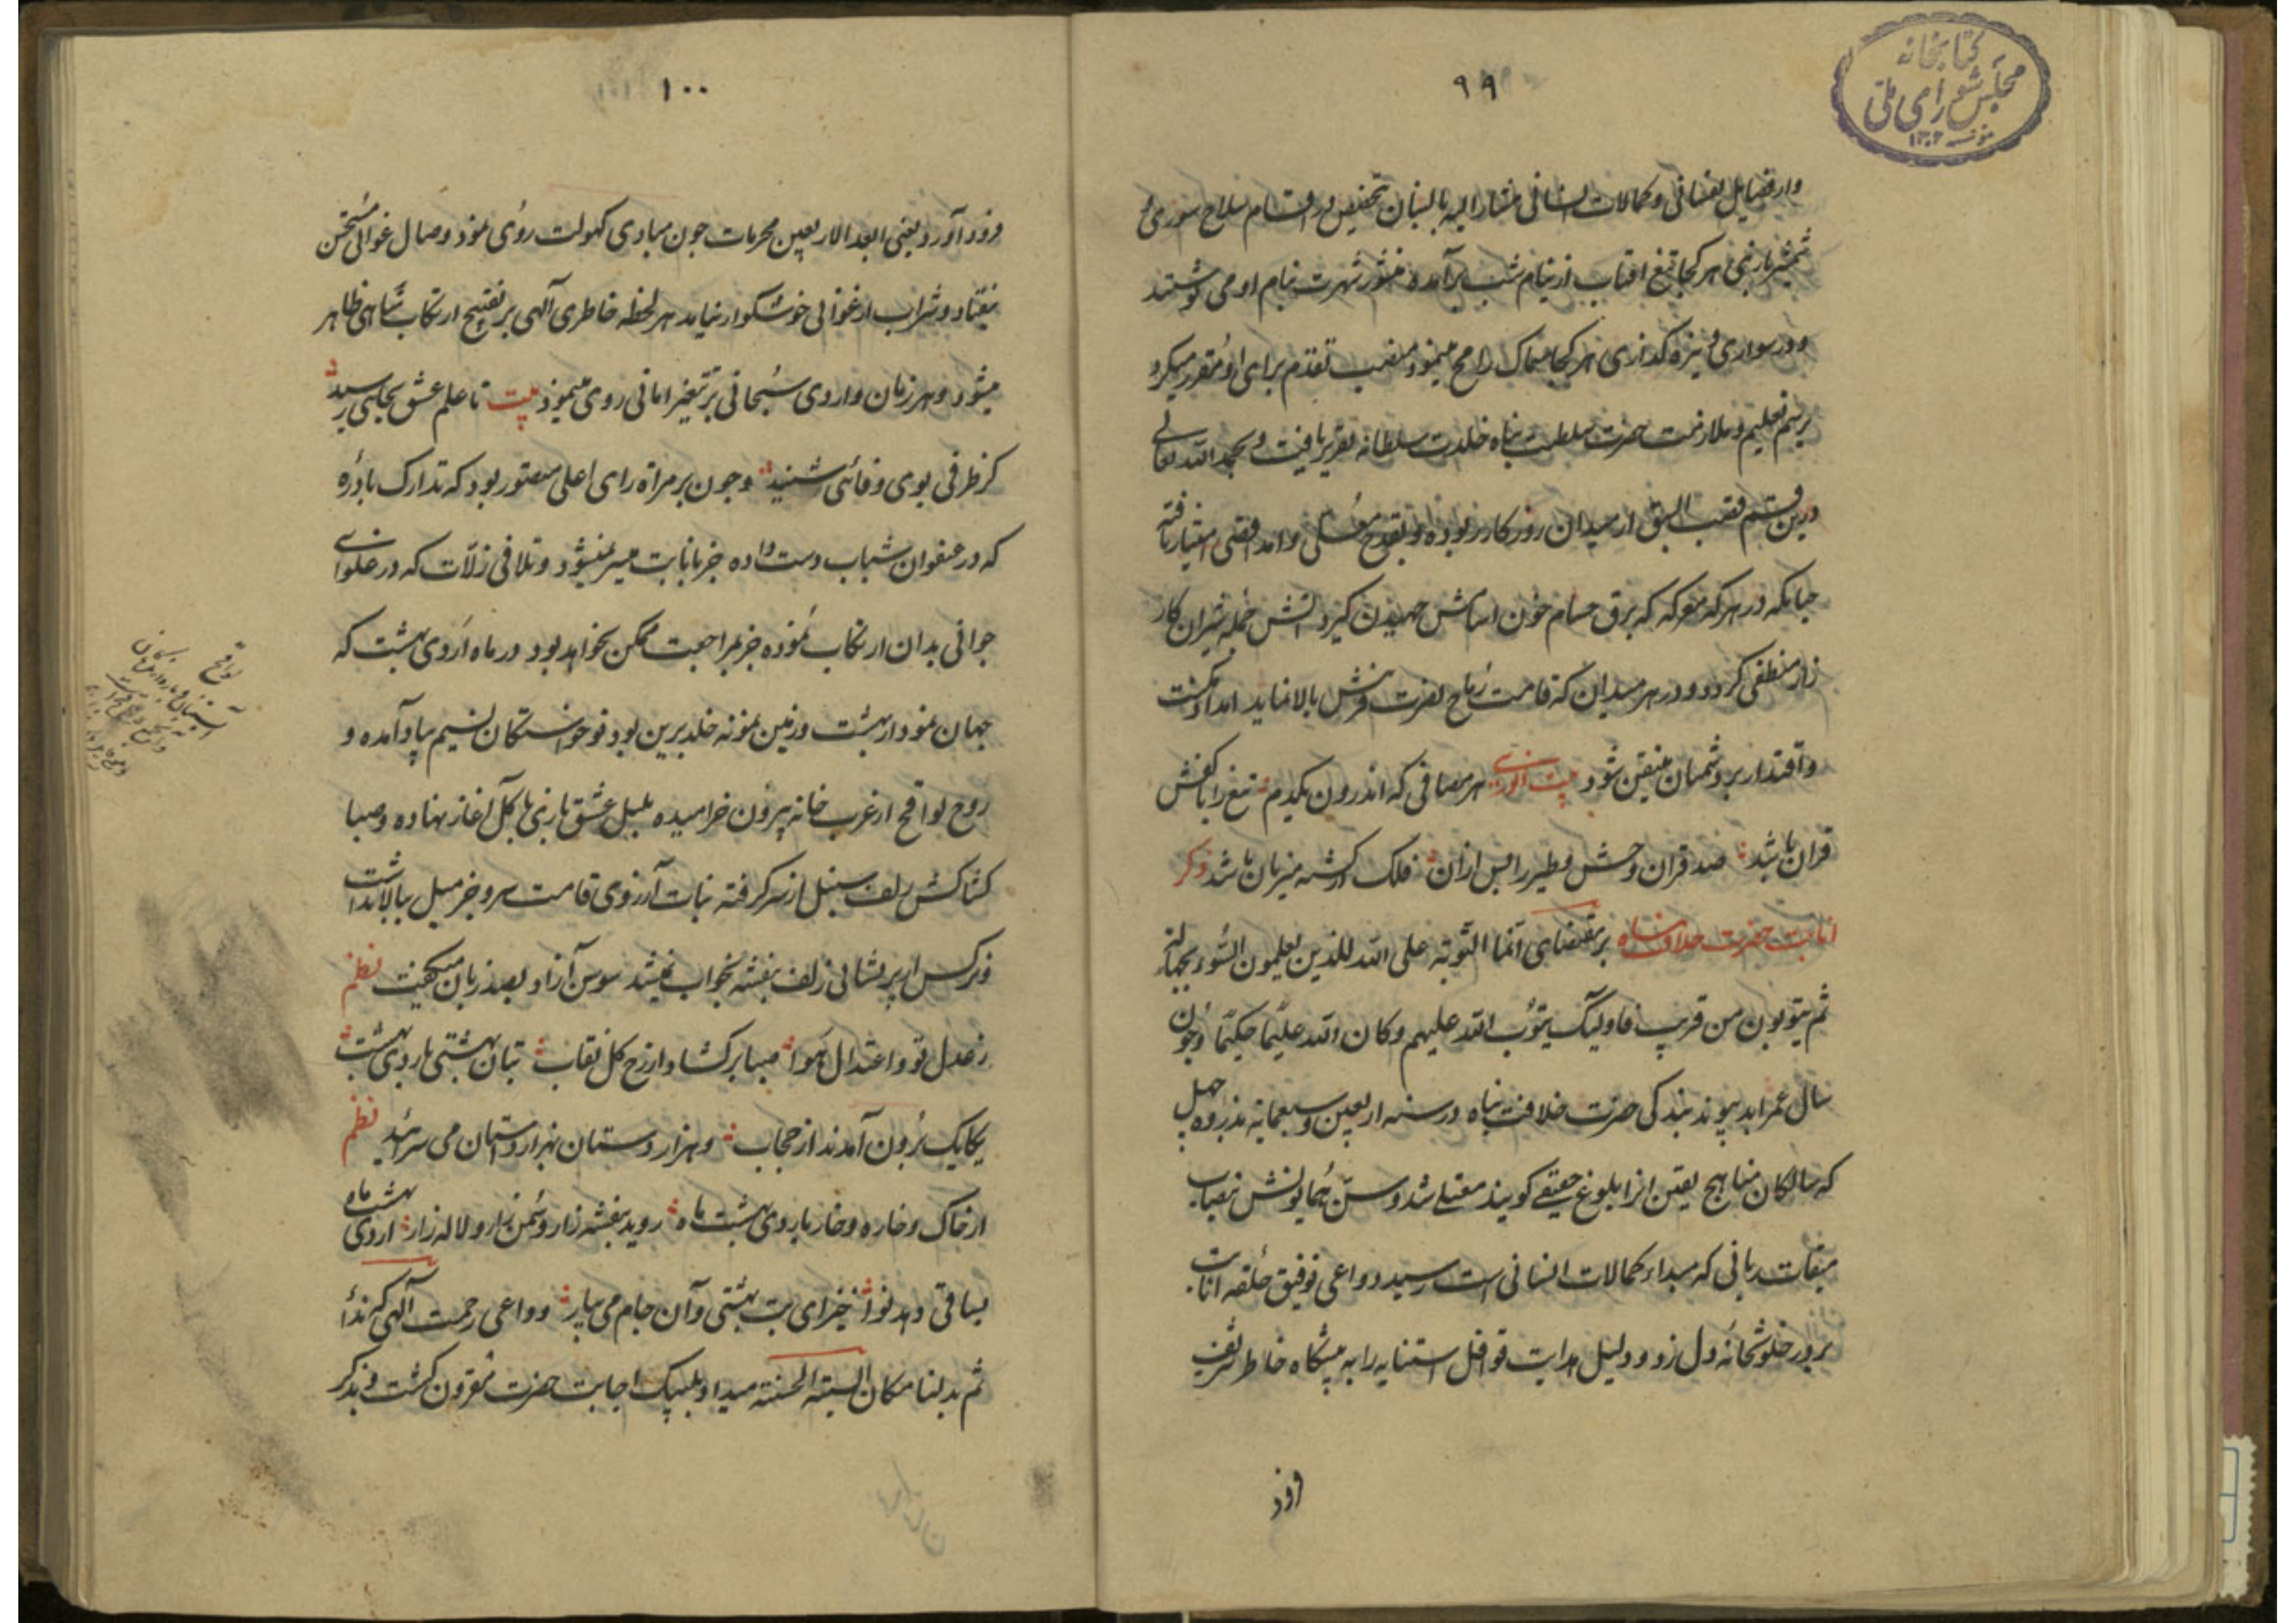 کتابخانه
مجلس شورای ملی
۱۳۰۲
۹۹
و از فضایل نفسانی و کمالات انسانی مشار الیه بالبنان تخصیص در اقسام سلاح شوری
شمشیربازی هر کجا تیغ افتاب از نیام شب برآمده منشور شهرت بنام او می نوشتند
و در سواری و نیزه گذاری هر کجا سماک رامح مینمود منصب تقدم برای او مقرر میکرد
برسم تعلیم و ملازمت حضرت سلطنت پناه خلدت سلطانه تقریر یافت و بحمد الله تعالی
درین قسم قصب السبق از میدان روزکار ربوده و بقدح معلی و امد اقصی امتیاز یافته
چنانکه در هر که معرکه که برق حسام خون اسامش جهیدن کیرد اتش حمله شیران کار
زار منطفی کردد و در هر میدان که قامت رماح نصرت فرش بالا نماید امداد مکنت
و اقتدار بر دشمنان متیقن شود بیت انوری هر مصافی که اندرون یکدم تیغ را با کفش
قران باشد صد قران وحش و طیر را پس ازان فلک از کشته میزبان باشد ذکر
انابت حضرت خلافت پناه بر مقتضای انما التوبه علی الله للذین یعملون السوء بجهاله
ثم یتوبون من قریب فاولیک یتوب الله علیهم و کان الله علیما حکیما و چون
سال عمر ابد پیوند بندکی حضرت خلافت پناه در سنه اربعین و سبعمایه بذروه چهل
که سالکان مناهج یقین انرا بلوغ حقیقی کویند معتلی شد و سن همایونش بنصاب
میقات ربانی که مبداء کمالات انسانی است رسید دواعی توفیق حلقه انابت
بر در خلوتخانه دل زد و دلیل هدایت قوافل استنابه را به پیشکاه خاطر شریف
فرود
۱۰۰
فرود آورد یعنی ابعد الاربعین محرمات چون مبادی کهولت روی نمود وصال غوانی مستحسن
نیفتاد و شراب ارغوانی خوشکوار نیاید هر لحظه خاطری آلهی بر تقبیح ارتکاب مناهی ظاهر
میشود و هر زمان واردی سبحانی بر تتغیر امانی روی مینمود بیت تا علم عشق بجایی رسید
کز طرفی بوی وفائی شنید و چون بر مراة رای اعلی متصور بود که تدارک بادره
که در عنفوان شباب دست داده جز بانابت میسر نمیشود و تلافی زلات که در غلوای
جوانی بدان ارتکاب نموده جز بمراجعت ممکن نخواهد بود در ماه اردی بهشت که
جهان نمودار بهشت و زمین نمونه خلد برین بود نوخواستکان نسیم بیاد آمده و
روح لواقح از غرب خانه بیرون خرامیده بلبل عشق بازی با کل آغاز نهاده و صبا
کشاکش زلف سنبل از سر کرفته نبات آرزوی قامت سرو جز میل ببالا نداشت
و نرکس از پریشانی زلف بنفشه بخواب نمیشد سوسن آزاد بصد زبان میکفت نظم
ز عدل تو و اعتدال هوا صبا برکشاد از رخ کل نقاب بتان بهشتی باردی بهشت
یکایک برون آمدند از حجاب و هزار دستان بهزار دستان می سرائید نظم
از خاک و خاره و خار باردی بهشت ماه روید بنفشه زار و سمن زار و لاله زار اردی بهشت ماه
بساقی دهد نوا خیز ای بت بهشتی و آن جام می بیار و داعی رحمت آلهی که ندا
ثم بدلنا مکان السیئه الحسنة میداد بلبیک اجابت حضرت مقرون کشت و بذکر
لواقح